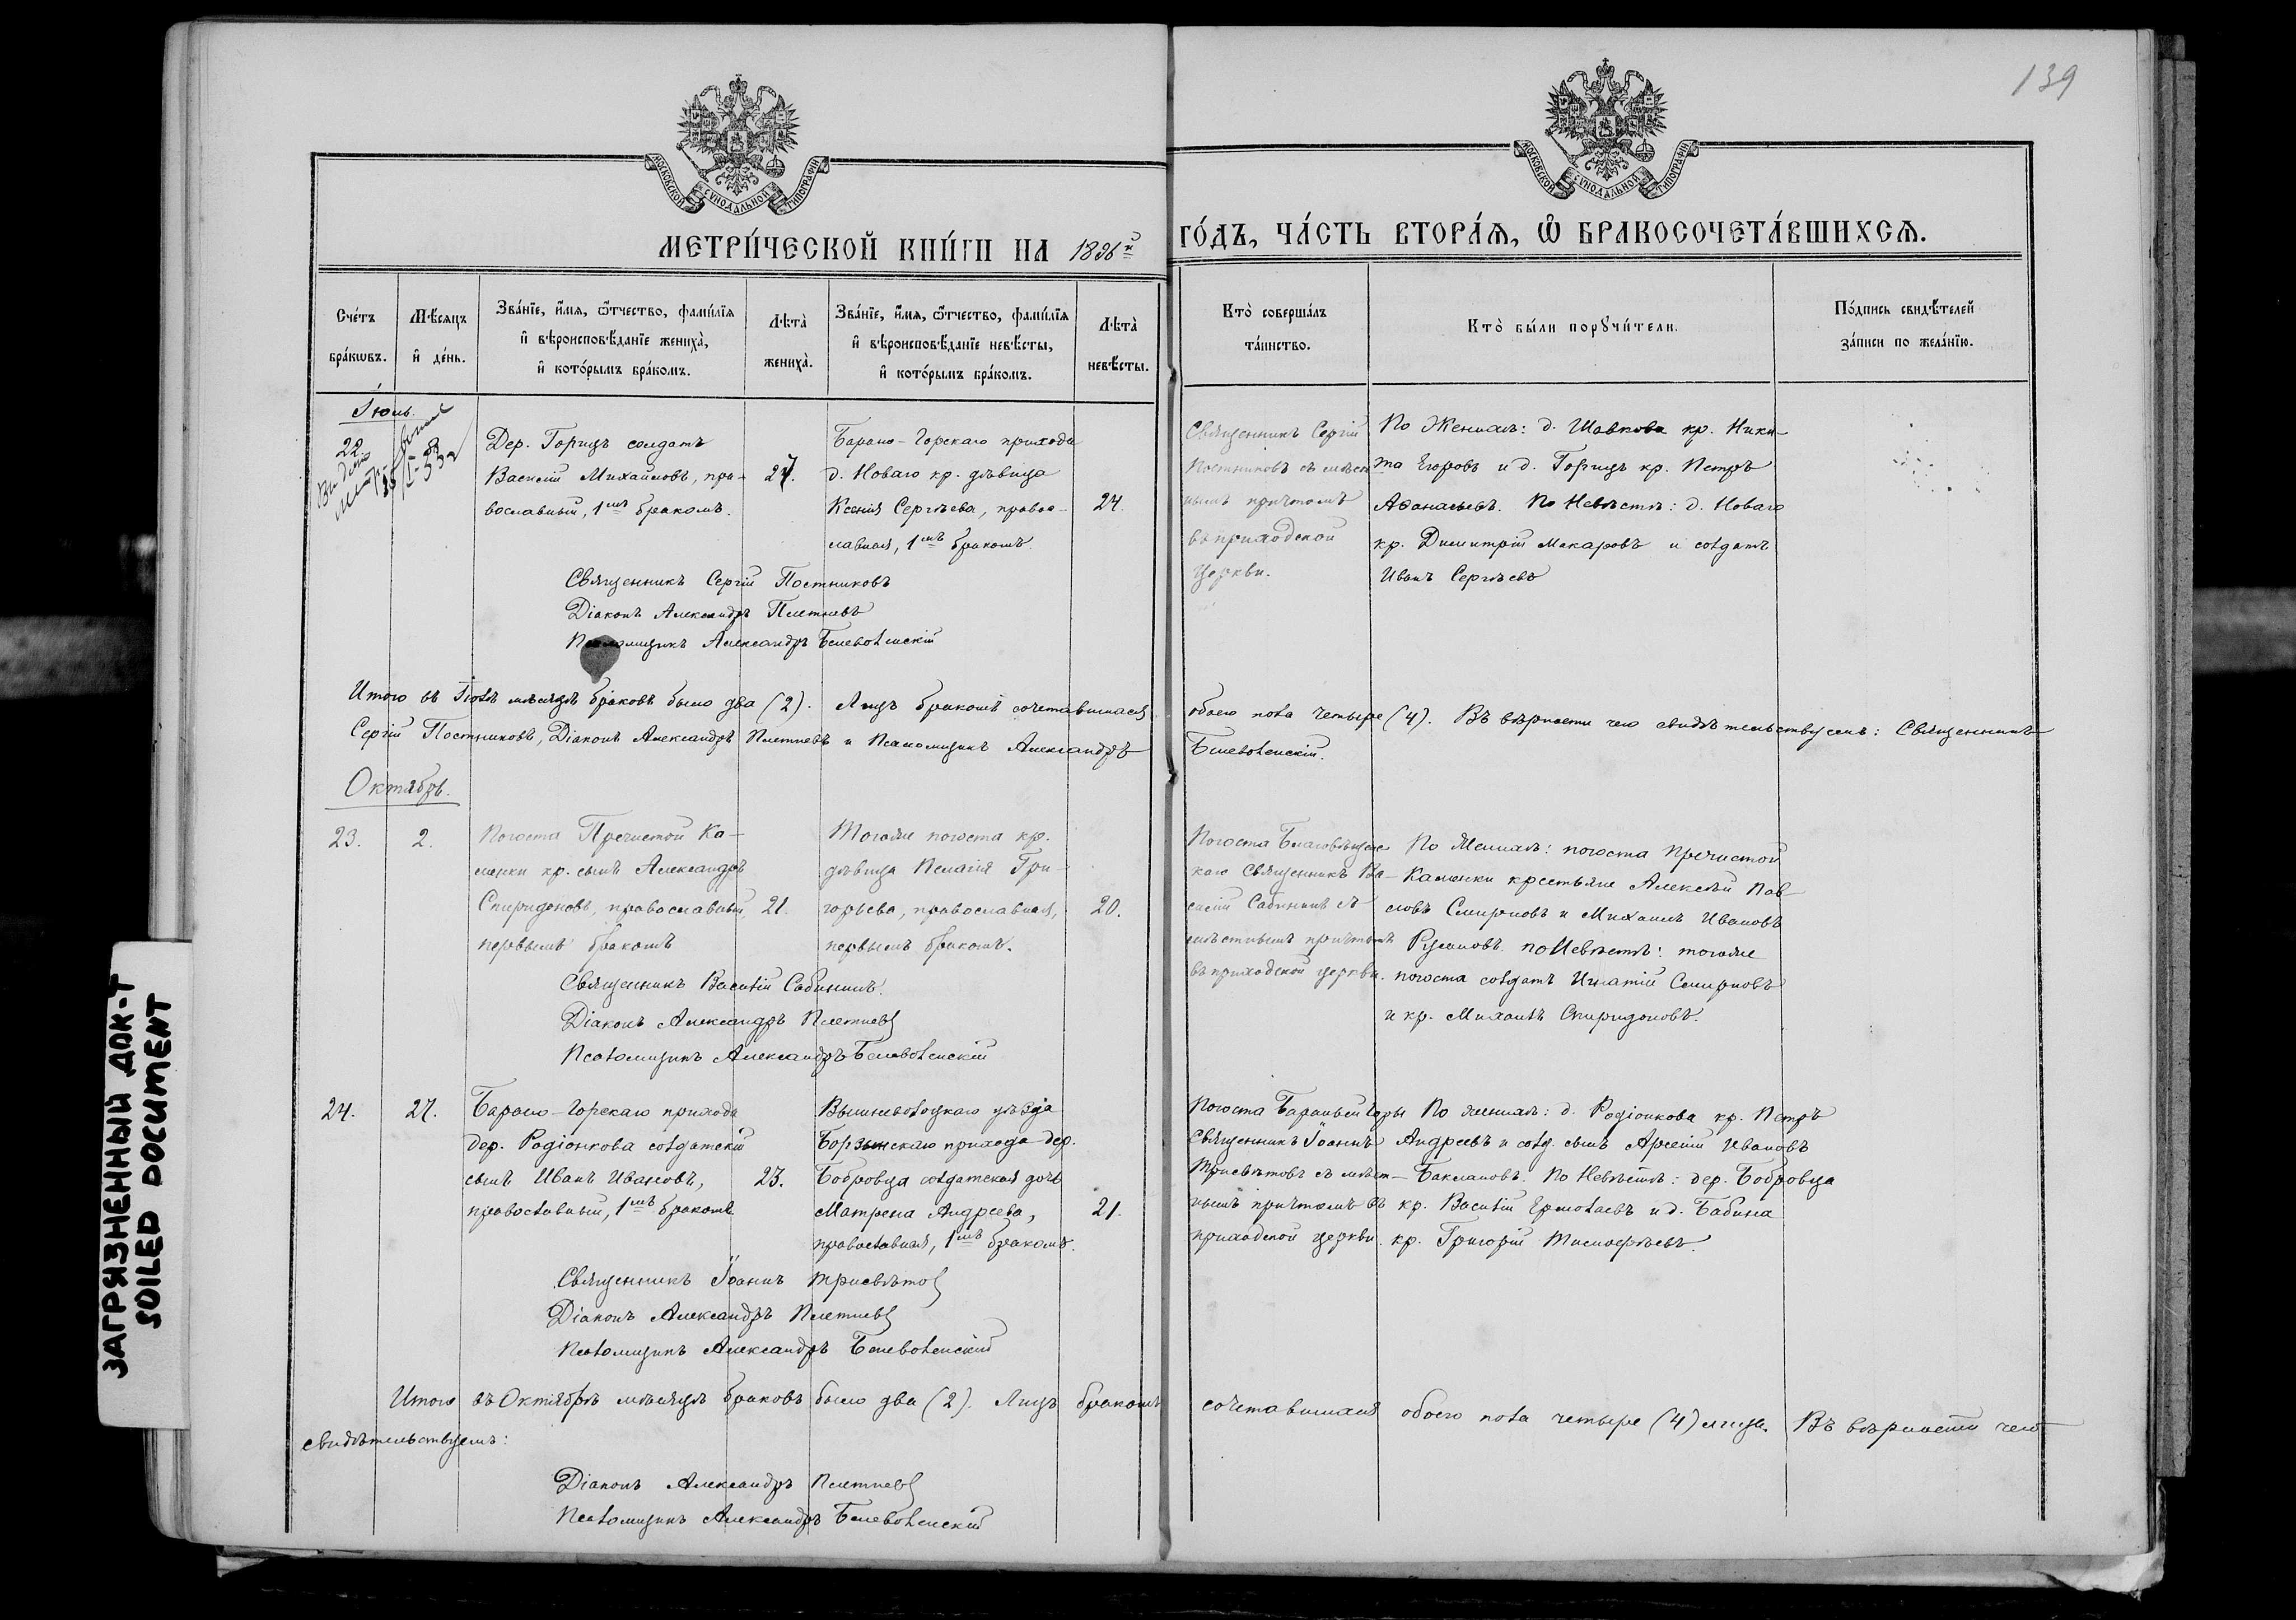 139
МОСКОВСКОЙ СѴНОДАЛЬНОЙ ТИПОГРАФІИ
МОСКОВСКОЙ СѴНОДАЛЬНОЙ ТИПОГРАФІИ
МЕТРИ́ЧЕСКОЙ КНИ́ГИ НА 1896й ГО́ДЪ, ЧА́СТЬ ВТОРА́Ѧ, Ѡ҆ БРАКОСОЧЕТА́ВШИХСѦ.
Сче́тъ
бра́кѡвъ.
Мѣ́сяцъ
и҆ де́нь.
Зва́нїе, и҆́мя, ѻ҆́тчество, фами́лїя
и҆ вѣроисповѣ́данїе жениха̀,
и҆ кото́рымъ бра́комъ.
Лѣта̀
жениха̀.
Зва́нїе, и҆́мя, ѻ҆́тчество, фами́лїя
и҆ вѣроисповѣ́данїе невѣ́сты,
и҆ кото́рымъ бра́комъ.
Лѣта̀
невѣ́сты.
Кто̀ соверша́лъ
та́инство.
Кто̀ бы́ли порꙋчи́тели.
По́дпись свидѣ́телей
за́писи по жела́нїю.
Іюль.
22.
8
Дер. Горицъ солдатъ
Василій Михайловъ, пра-
вославный, 1мъ бракомъ.
27.
Барано-Горскаго прихода
д. Новаго кр. дѣвица
Ксенія Сергѣева, правос-
лавная, 1мъ бракомъ.
24.
Священникъ Сергій
Постниковъ съ мѣст
нымъ причтомъ
въ приходской
церкви.
По Женихѣ: д. Шавкова кр. Ники-
та Егоровъ и д. Горицъ кр. Петръ
Аѳанасьевъ. По Невѣстѣ: д. Новаго
кр. Димитрій Макаровъ и солдатъ
Иванъ Сергѣевъ
Священникъ Сергій Постниковъ
Діаконъ Александръ Плетневъ
Псаломщикъ Александръ
Итого въ Іюлѣ мѣсяцѣ браковъ было два (2). Лицъ бракомъ сочетавшихся обоего пола четыре (4). Въ вѣрности чего свидѣтельствуемъ: Священникъ
Сергій Постниковъ, Діаконъ Александръ Плетневъ и Псаломщикъ Александръ
Октябрь.
23.
2.
Погоста Пречистой Ка-
менки кр. сынъ Александръ
Спиридоновъ, православный,
первымъ бракомъ
21.
Тогоже погоста кр.
дѣвица Пелагія Гри-
горьева, православная,
первымъ бракомъ.
20.
Погоста Благовѣщенс
каго Священникъ Ва-
силій Сабининъ съ
мѣстнымъ причтомъ
въ приходской церкви.
По Женихѣ: погоста Пречистой
Каменки крестьяне Алексѣй Пав-
ловъ Смирновъ и Михаилъ Ивановъ
Русановъ. по Невѣстѣ: тогоже
погоста солдатъ Игнатій Смирновъ
и кр. Михаилъ Спиридоновъ.
Священникъ Василій Сабининъ.
Діаконъ Александръ Плетневъ
Псаломщикъ Александръ
24.
27.
Барано-Горскаго прихода
дер. Родіонкова солдатскій
сынъ Иванъ Ивановъ,
православный, 1мъ бракомъ
23.
Вышневолоцкаго уѣзда
Борзынскаго прихода дер.
Бобровца солдатская дочь
Матрена Андреева,
православная, 1мъ бракомъ.
21.
Погоста Бараньей Горы
Священникъ Іоаннъ
Трисвѣтовъ съ мѣст-
нымъ причтомъ въ
приходской церкви.
По женихѣ: д. Родіонкова кр. Петръ
Андреевъ и солд. сынъ Арсеній Ивановъ
Баклановъ. По Невѣстѣ: дер. Бобровца
кр. Василій Ермолаевъ и д. Бабина
кр. Григорій Тимоѳеевъ.
Священникъ Іоаннъ Трисвѣтовъ
Діаконъ Александръ Плетневъ
Псаломщикъ Александръ
Итого въ Октябрѣ мѣсяцѣ браковъ было два (2). Лицъ бракомъ сочетавшихся обоего пола четыре (4) лица. Въ вѣрности чего
свидѣтельствуемъ:
Діаконъ Александръ Плетневъ
Псаломщикъ Александръ
ЗАГРЯЗНЕННЫЙ ДОК-Т
SOILED DOCUMENT